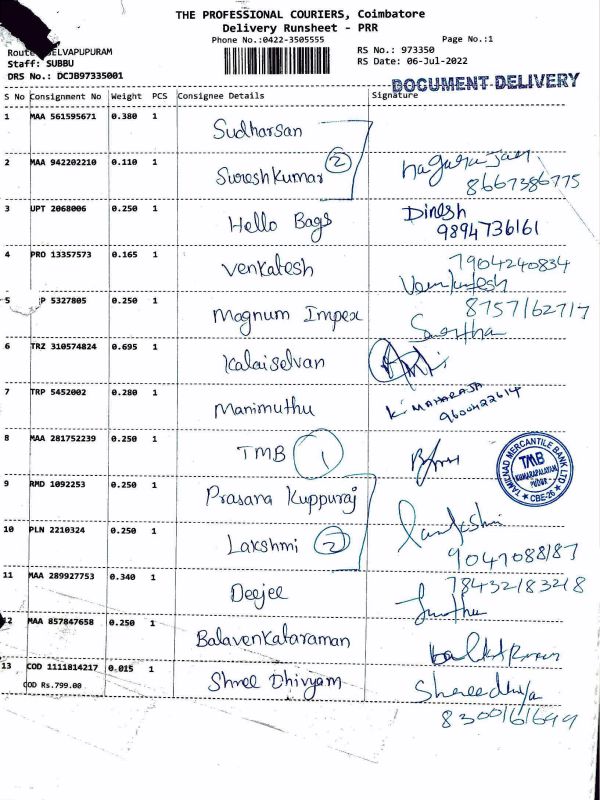 THE PROFESSIONAL COURIERS, Coimbatore
Delivery Runsheet - PRR
Phone No.:0422-3505555 Page No.:1
Route: SELVAPUPURAM RS No.: 973350
Staff: SUBBU RS Date: 06-Jul-2022
DRS No.: DCJB97335001 DOCUMENT DELIVERY
S No Consignment No Weight PCS Consignee Details Signature
1 MAA 561595671 0.380 1 Sudharsan
2 MAA 942202210 0.110 1 Sureshkumar 2 nagarajan
8667386775
3 UPT 2068006 0.250 1 Hello Bags Dinesh
9894736161
4 PRO 13357573 0.165 1 Venkatesh 7904240834
Venkatesh
5 P 5327805 0.250 1 Magnum Impex 8757162717
6 TRZ 310574824 0.695 1 Kalaiselvan
7 TRP 5452002 0.280 1 Manimuthu K. MAHARAJA
9600422614
8 MAA 281752239 0.250 1 TMB 1
TAMILNAD MERCANTILE BANK LTD
TMB
CBE-26
9 RMD 1092253 0.250 1 Prasana Kuppuraj
10 PLN 2210324 0.250 1 Lakshmi 2
9047088187
11 MAA 289927753 0.340 1 Deejee 7843218328
12 MAA 857847658 0.250 1 Balavenkataraman
13 COD 1111814217 0.015 1 Shree Dhivyam Shreedhivya
COD Rs.799.00 8300161699